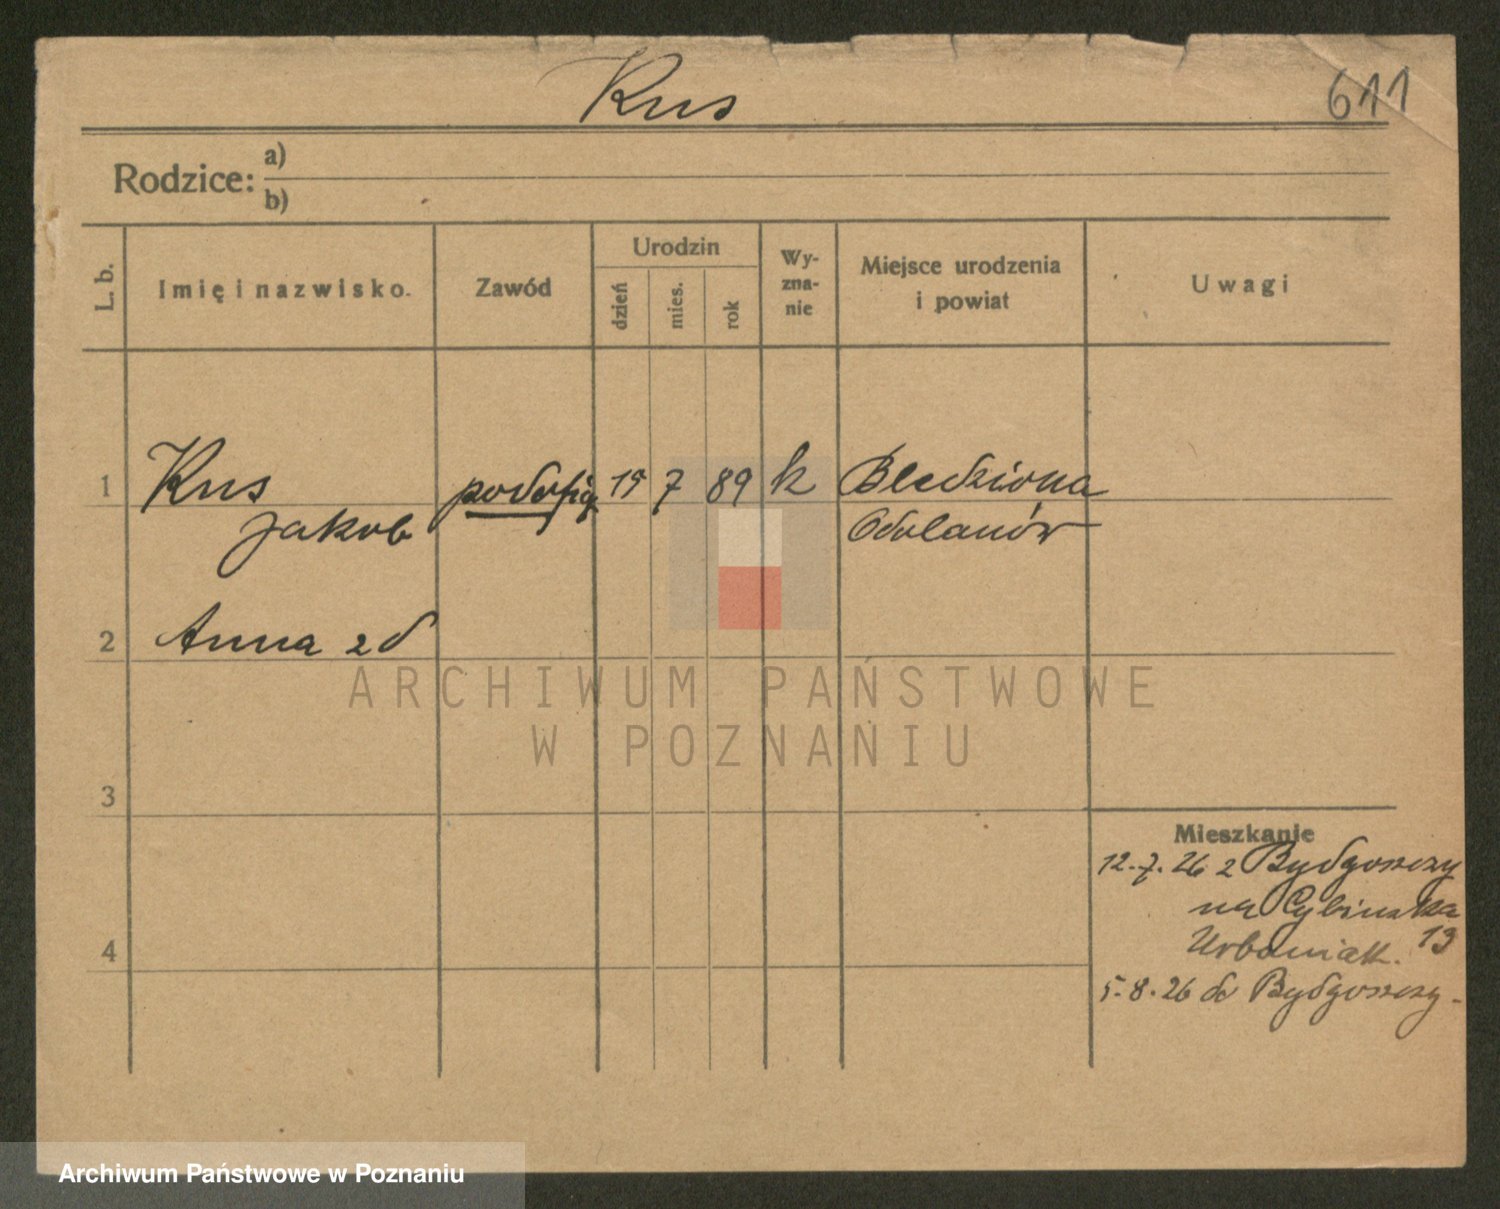 Kus
611
Rodzice: a)
b)
L. b.
Imię i nazwisko.
Zawód
Urodzin
dzień
mies.
rok
Wy-
zna-
nie
Miejsce urodzenia
i powiat
Uwagi
1 Kus 7 89 k
Jakob Odolanów
2 Anna
ARCHIWUM PAŃSTWOWE
W POZNANIU
3
Mieszkanie
12.7.26 z Bydgoszczy
na Cybinska
Urbaniak. 13
4
5.8.26 do Bydgoszczy.
Archiwum Państwowe w Poznaniu